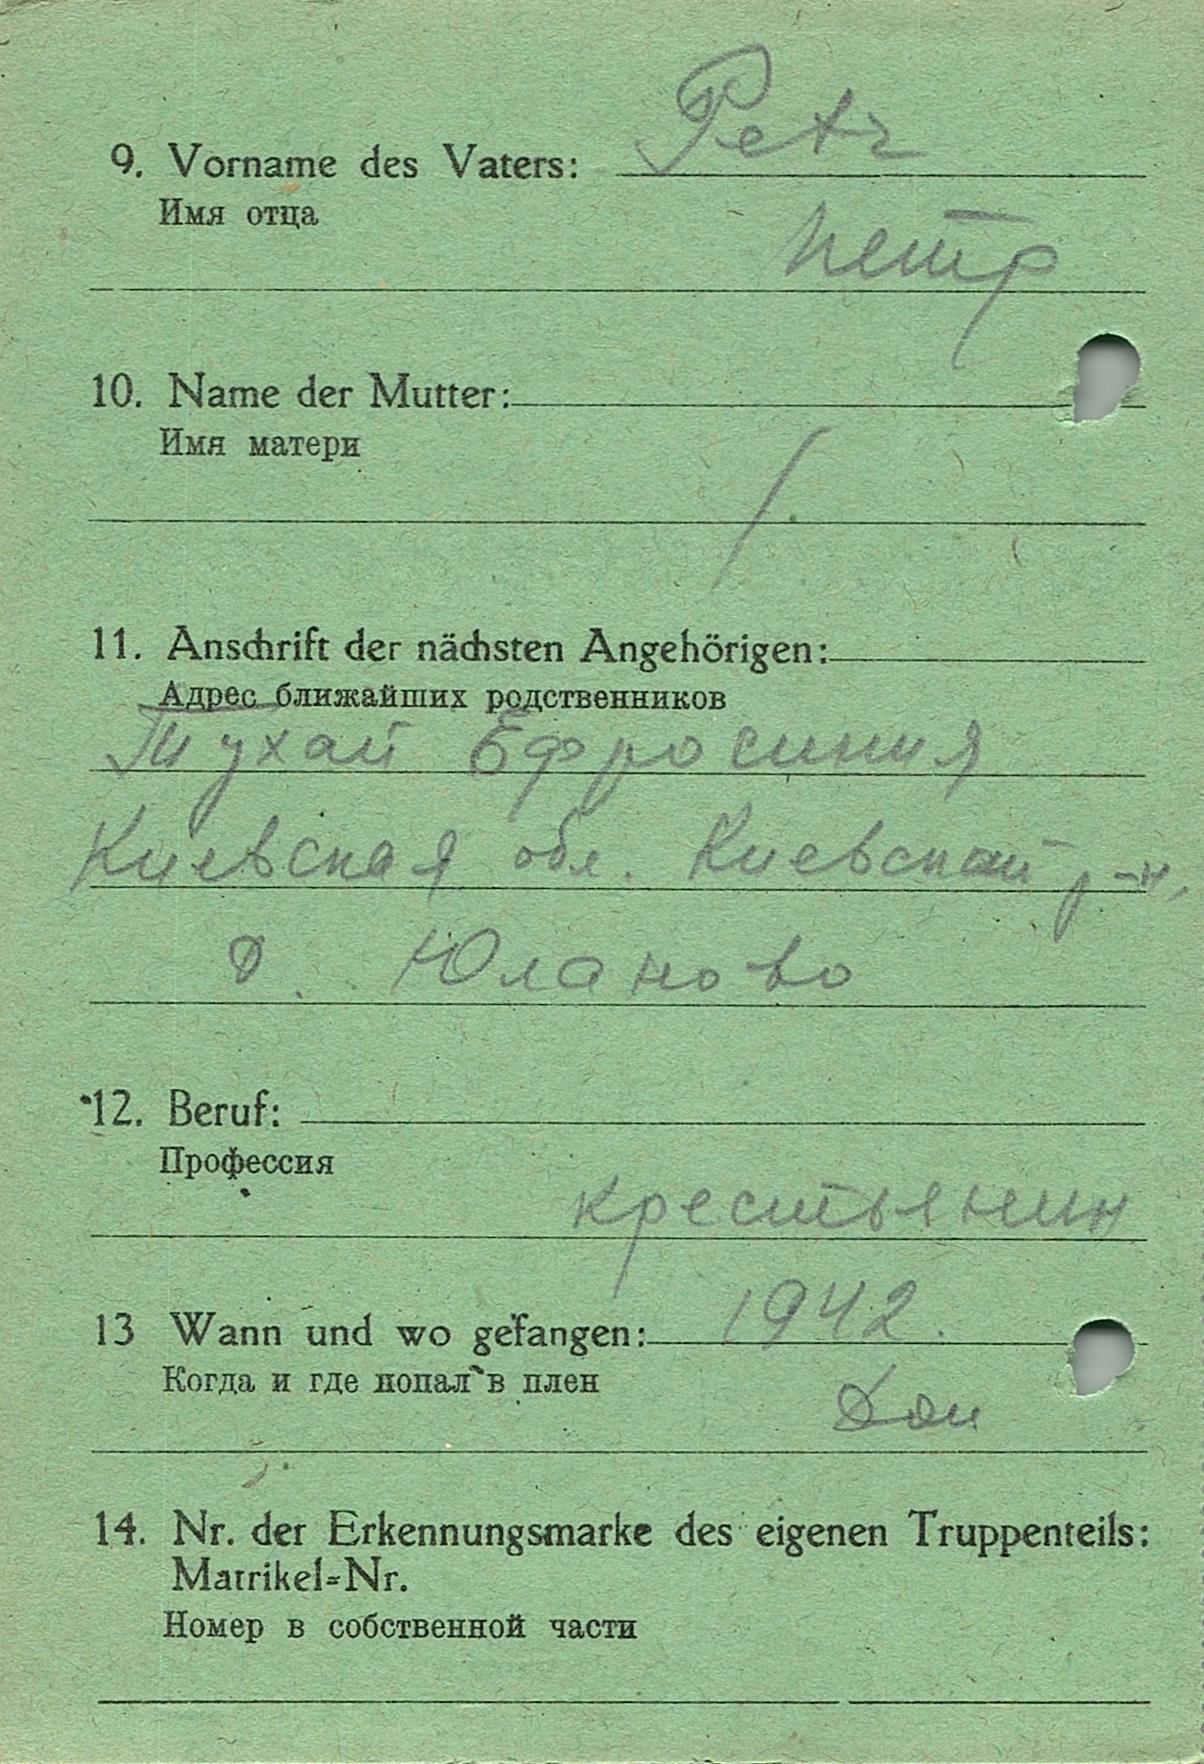 9. Vorname des Vaters: Petr
Имя отца
Петр
10. Name der Mutter:
Имя матери
/
11. Anschrift der nächsten Angehörigen:
Адрес ближайших родственников
Тухай Ефросиния
Киевская обл. Киевский р-н,
д. Юланово
12. Beruf:
Профессия
крестьянин
13 Wann und wo gefangen: 1942.
Когда и где попал в плен
Дон
14. Nr. der Erkennungsmarke des eigenen Truppenteils:
Matrikel-Nr.
Номер в собственной части